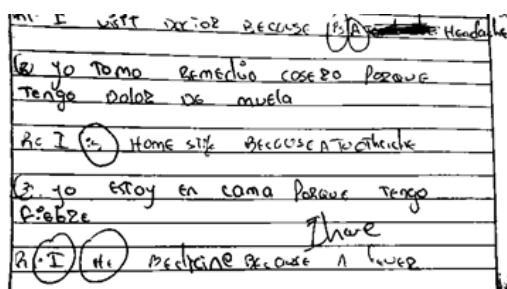 R: I visit Doctor Beccuse is A Headache
2. yo Tomo Remedio casero Porque
Tengo Dolor De muela
R: I is Home Beccuse A
3. yo Estoy En cama Porque Tengo
Fiebre
I have
R: I He Medicine Because A